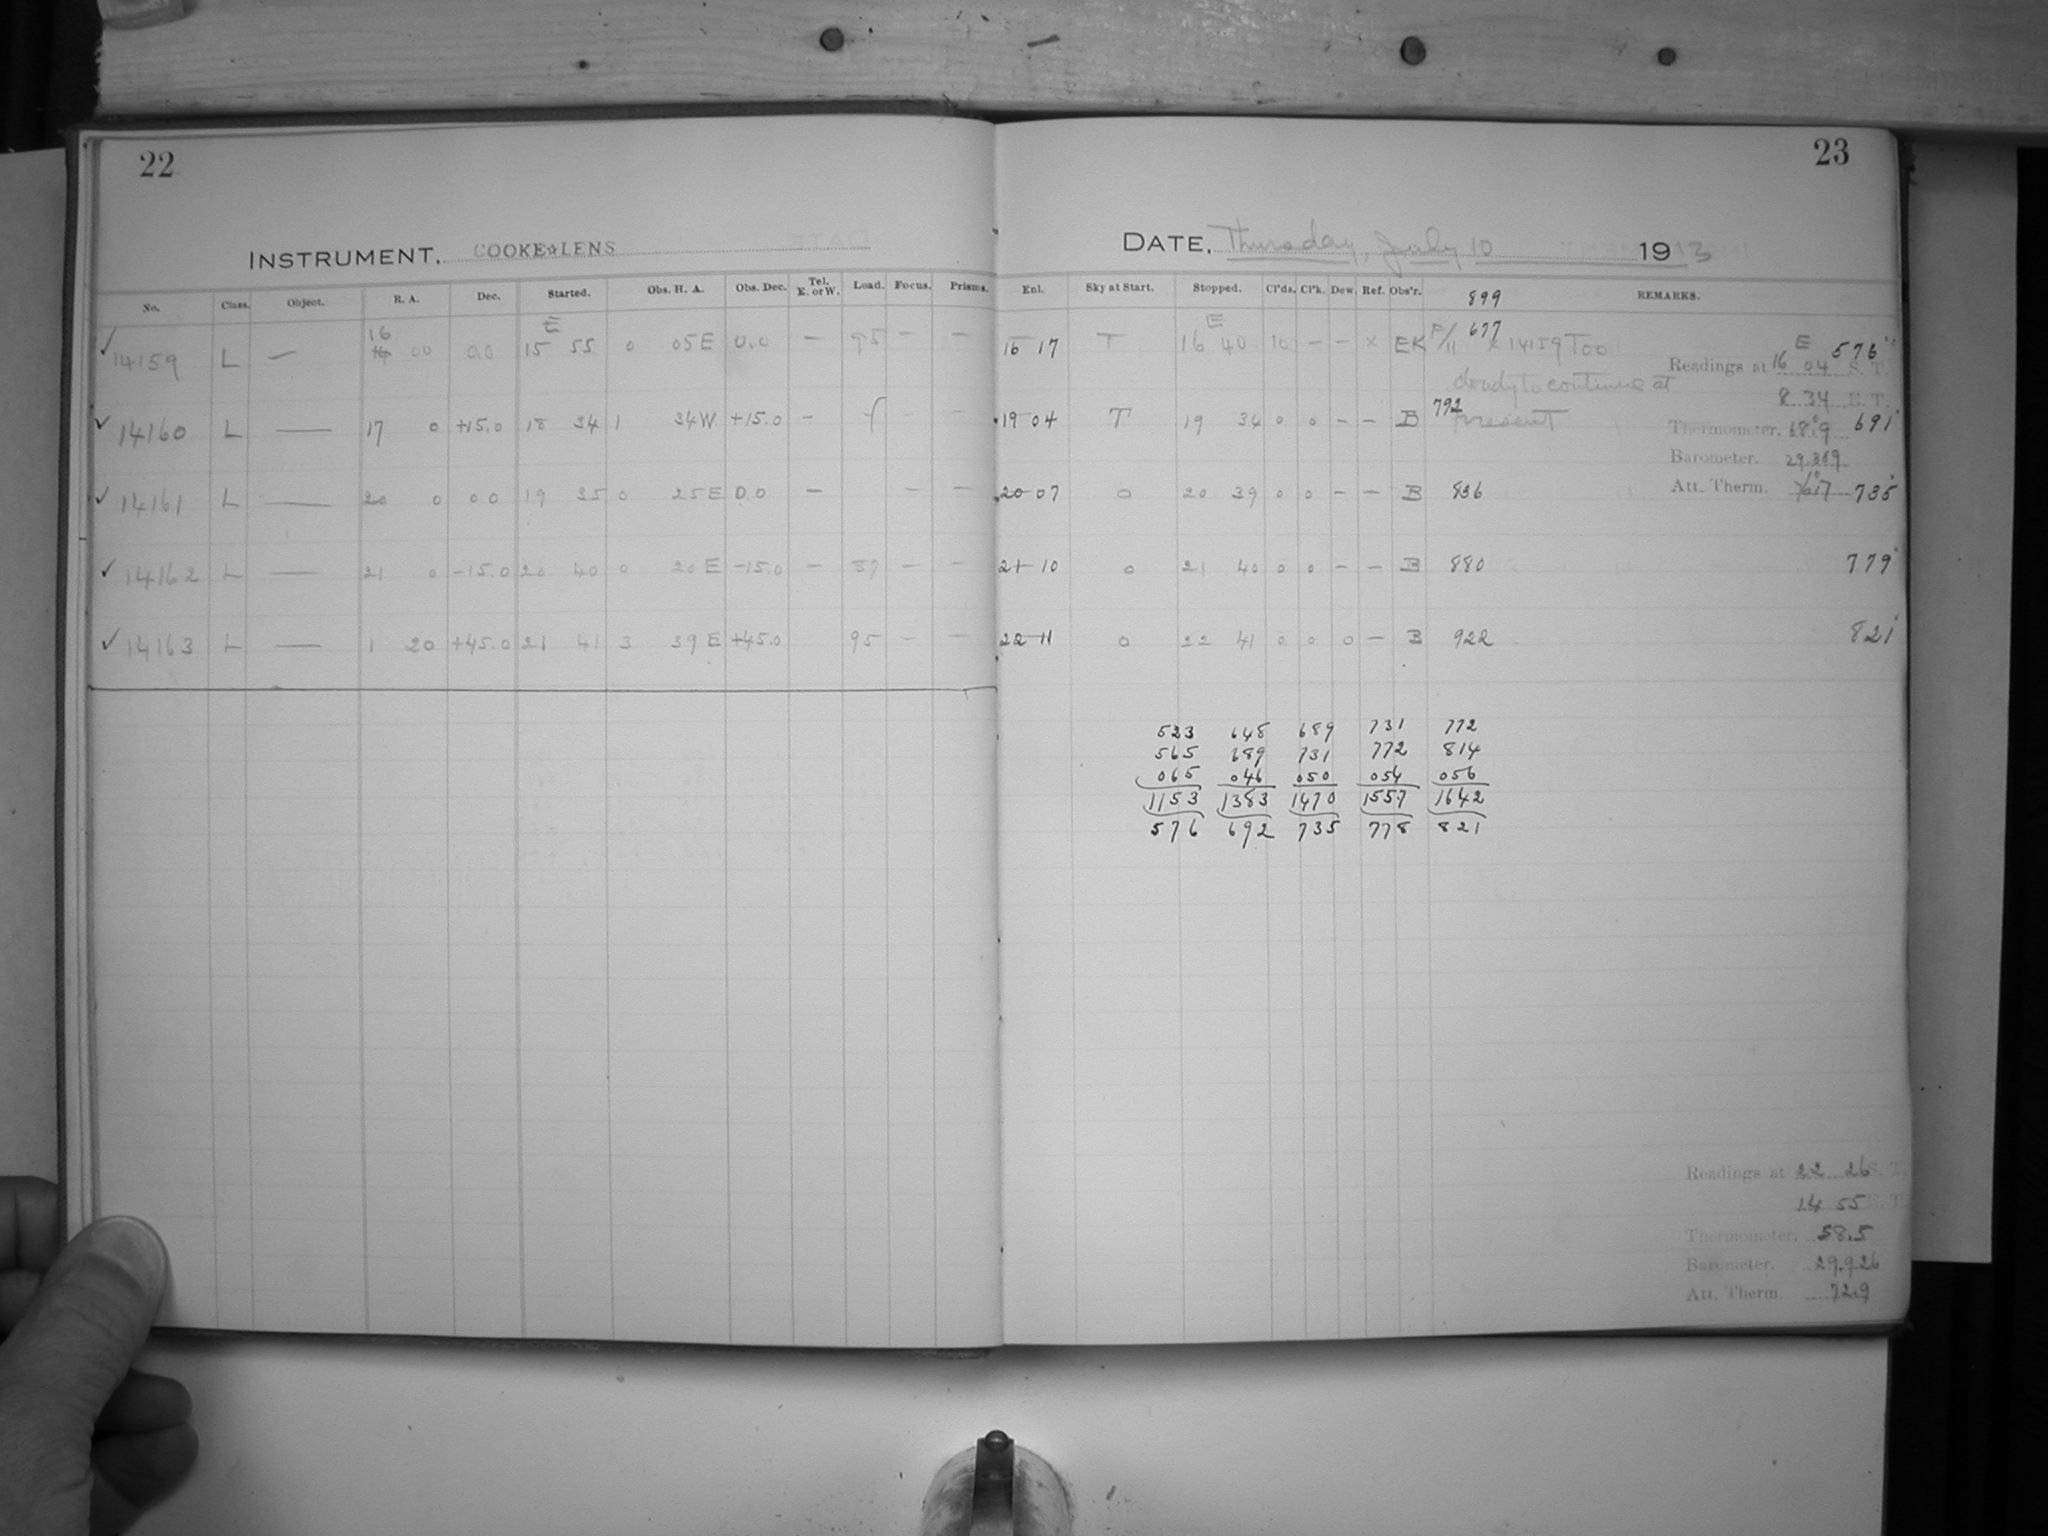 22
INSTRUMENT. COOKE☆LENS
No. Class. Object. R. A. Dec. Started. Obs. H. A. Obs. Dec. Tel. E. or W. Load. Focus. Prisms.
16 E
14159 L — 00 0.0 15 55 0 05E 0.0 — 95 — —
14160 L — 17 0 +15.0 18 34 1 34W +15.0 — — —
14161 L — 20 0 0.0 19 35 0 25E 0.0 — — —
14162 L — 21 0 -15.0 20 40 0 20E -15.0 — 37 — —
14163 L — 1 20 +45.0 21 41 3 39E +45.0 95 — —
23
DATE, Thursday, July 10 1913
Enl. Sky at Start. Stopped. Cl'ds. Cl'k. Dew. Ref. Obs'r. 899 REMARKS.
16 17 T E 16 40 10 — — × EK F/11 677 × 14159 Too
cloudy to continue at
present
19 04 T 19 34 0 0 — — B 792
20 07 0 20 39 0 0 — — B 836
21 10 0 21 40 0 0 — — B 880
22 11 0 22 41 0 0 0 — B 922
E 576
Readings at 16 04 S. T.
8 34 E. T.
Thermometer. 68.9 691
Barometer. 29.869
Att. Therm. 76.7 735
779
821
523 648 689 731 772
565 689 731 772 814
065 046 050 054 056
1153 1383 1470 1557 1642
576 692 735 778 821
Readings at 22 26 S. T.
14 55 E. T.
Thermometer. 58.5
Barometer. 29.926
Att. Therm. 72.9